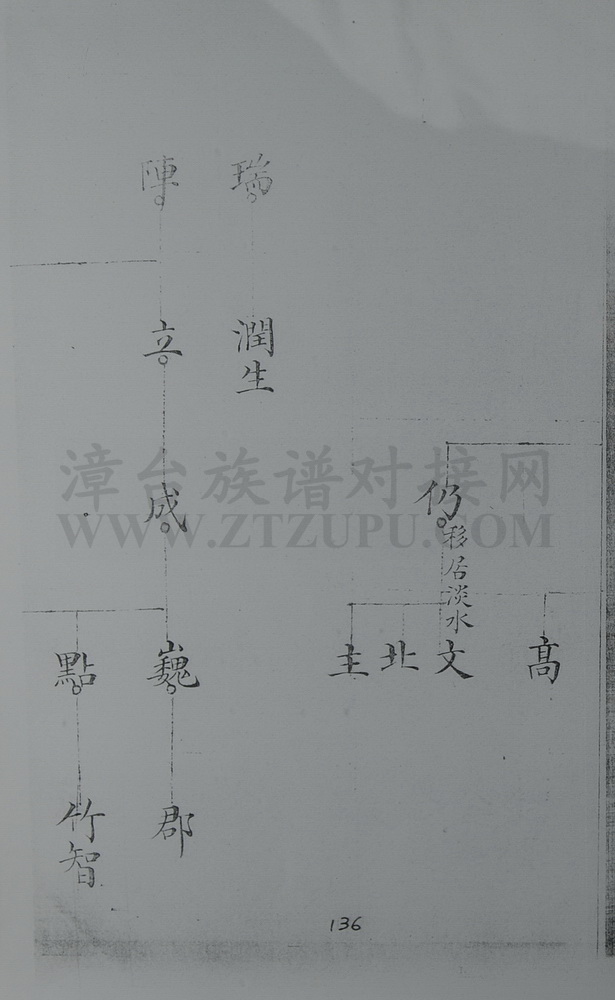 高
仍
移居淡水
文
北
主
瑞
潤生
陣
立
成
巍
郡
點
竹智
漳台族谱对接网
WWW.ZTZUPU.COM
136